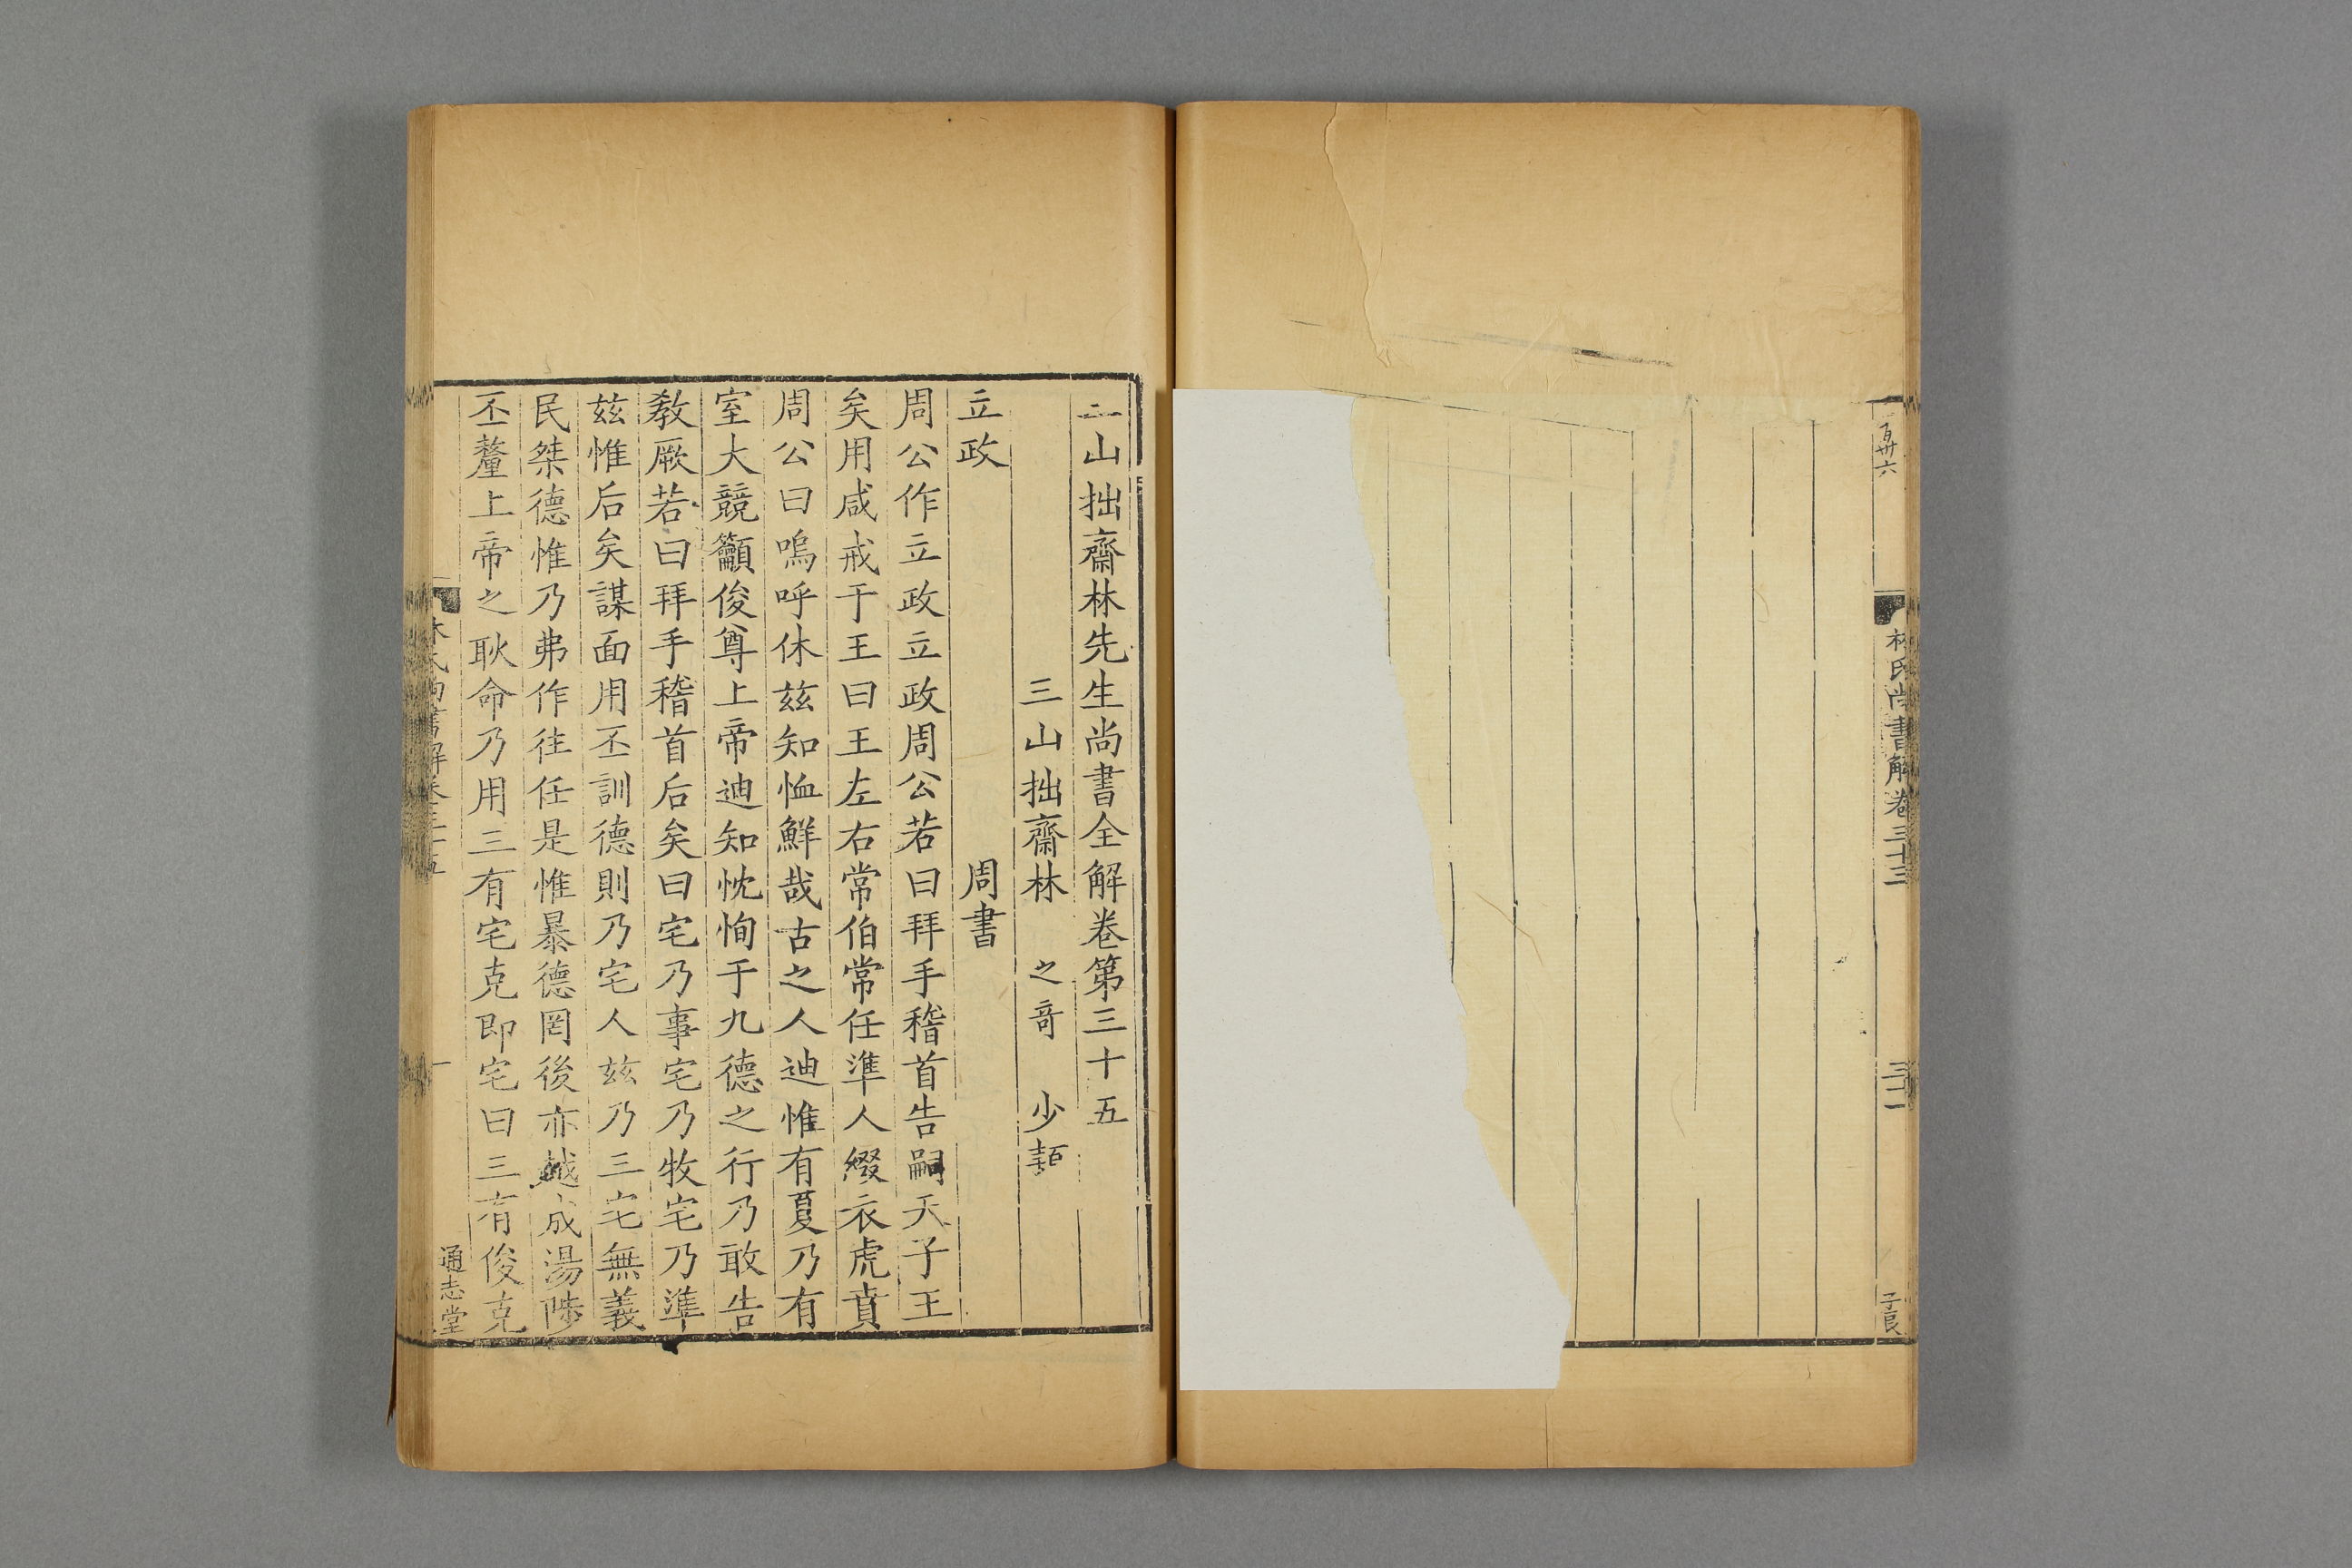 百卅六
林氏尚書解卷三十三
三十一
子良
三山拙齋林先生尚書全解卷第三十五
三山拙齋林 之奇 少穎
立政 周書
周公作立政立政周公若曰拜手稽首告嗣天子王
矣用咸戒于王曰王左右常伯常任準人綴衣虎賁
周公曰嗚呼休茲知恤鮮哉古之人迪惟有夏乃有
室大競籲俊尊上帝迪知忱恂于九德之行乃敢告
教厥若曰拜手稽首后矣曰宅乃事宅乃牧宅乃準
茲惟后矣謀面用丕訓德則乃宅人茲乃三宅無義
民桀德惟乃弗作往任是惟暴德罔後亦越成湯陟
丕釐上帝之耿命乃用三有宅克即宅曰三有俊克
林氏尚書解卷三十五
一
通志堂